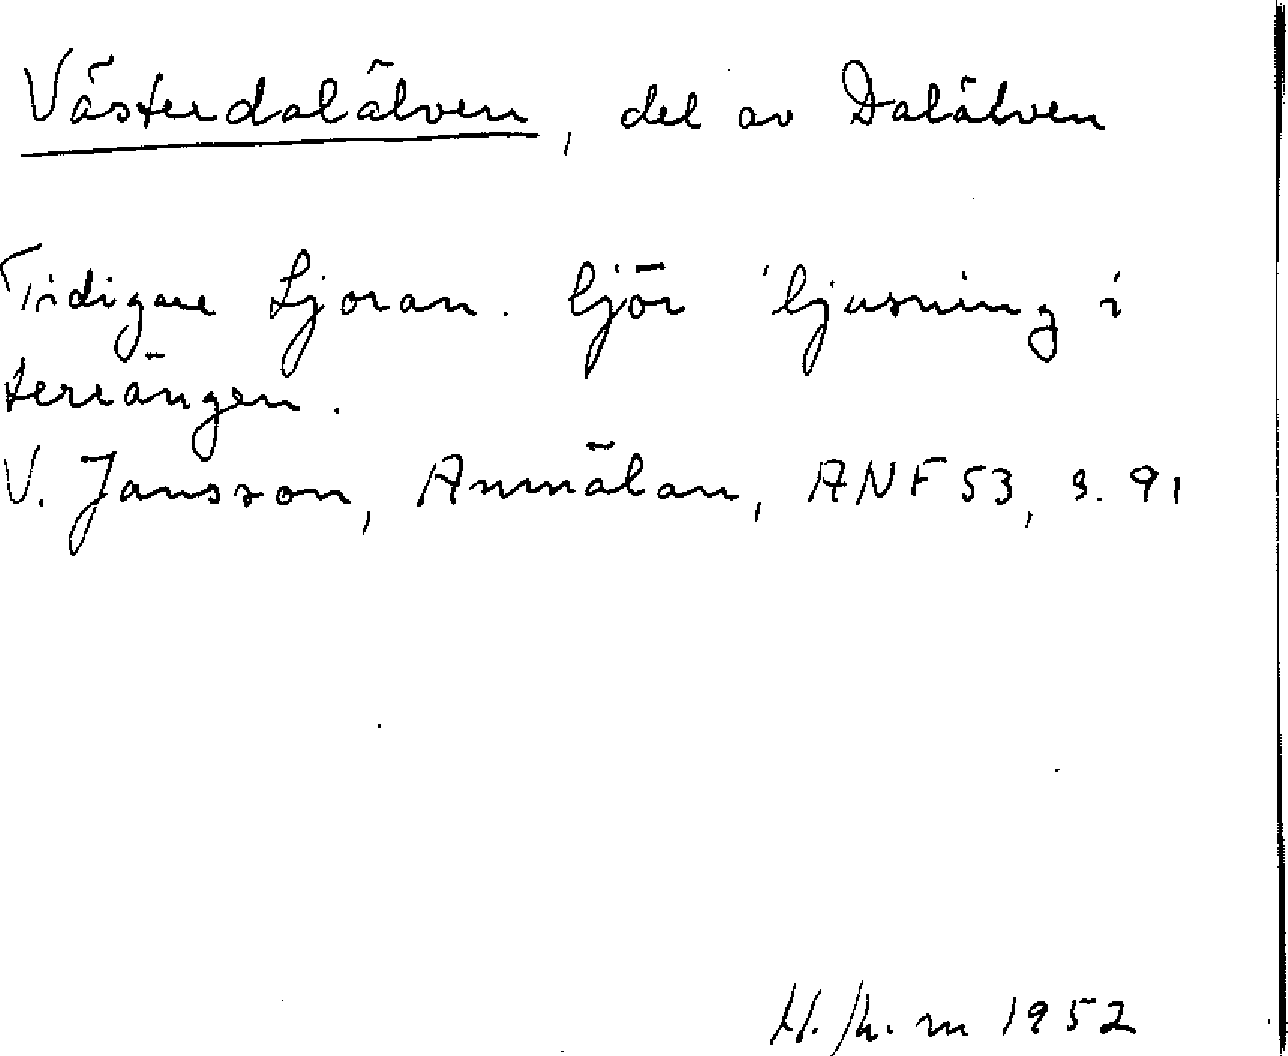 Västerdalälven, del av Dalälven
Tidigare Ljoran. ljör 'ljusning i
terrängen.
V. Jansson, Anmälan, ANF 53, s. 91
1952